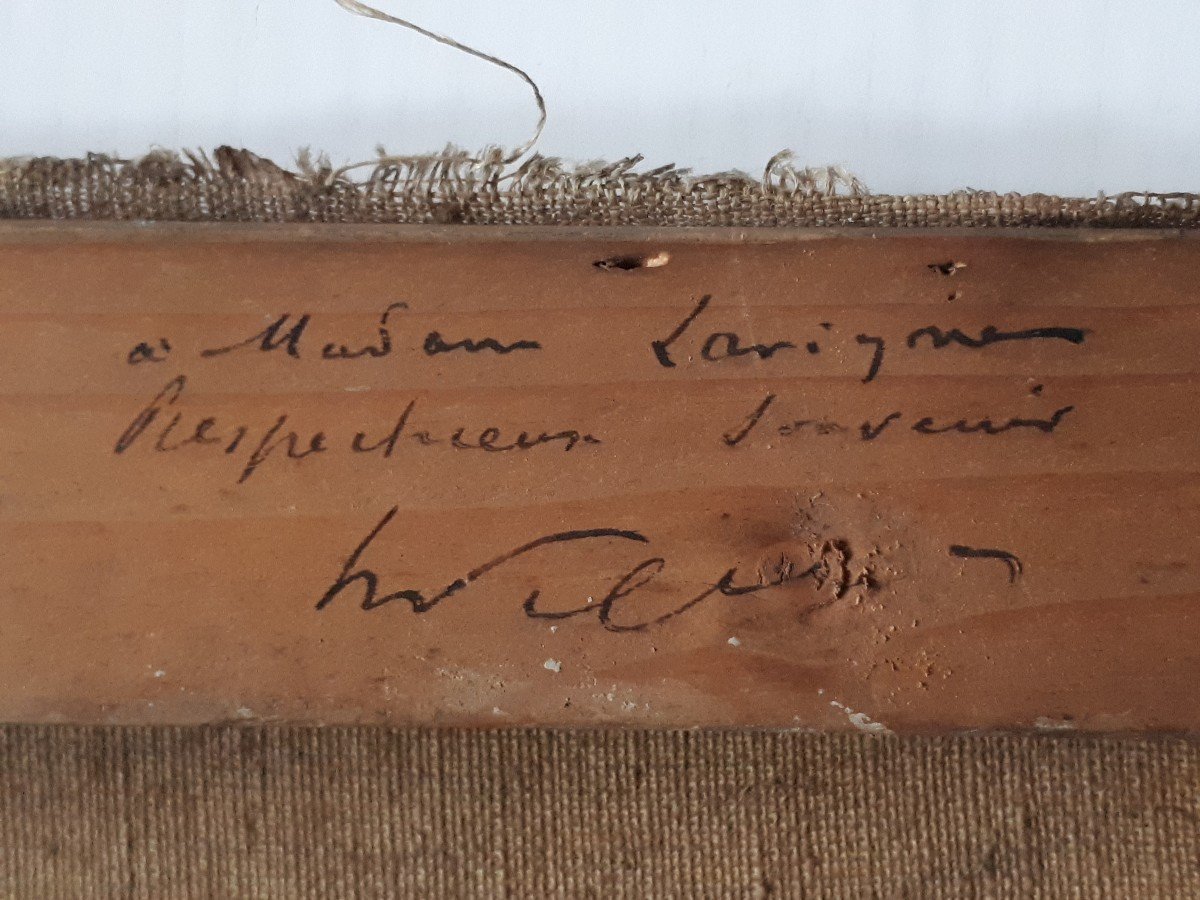 à Madam Lavigne
Respectueux Souvenir